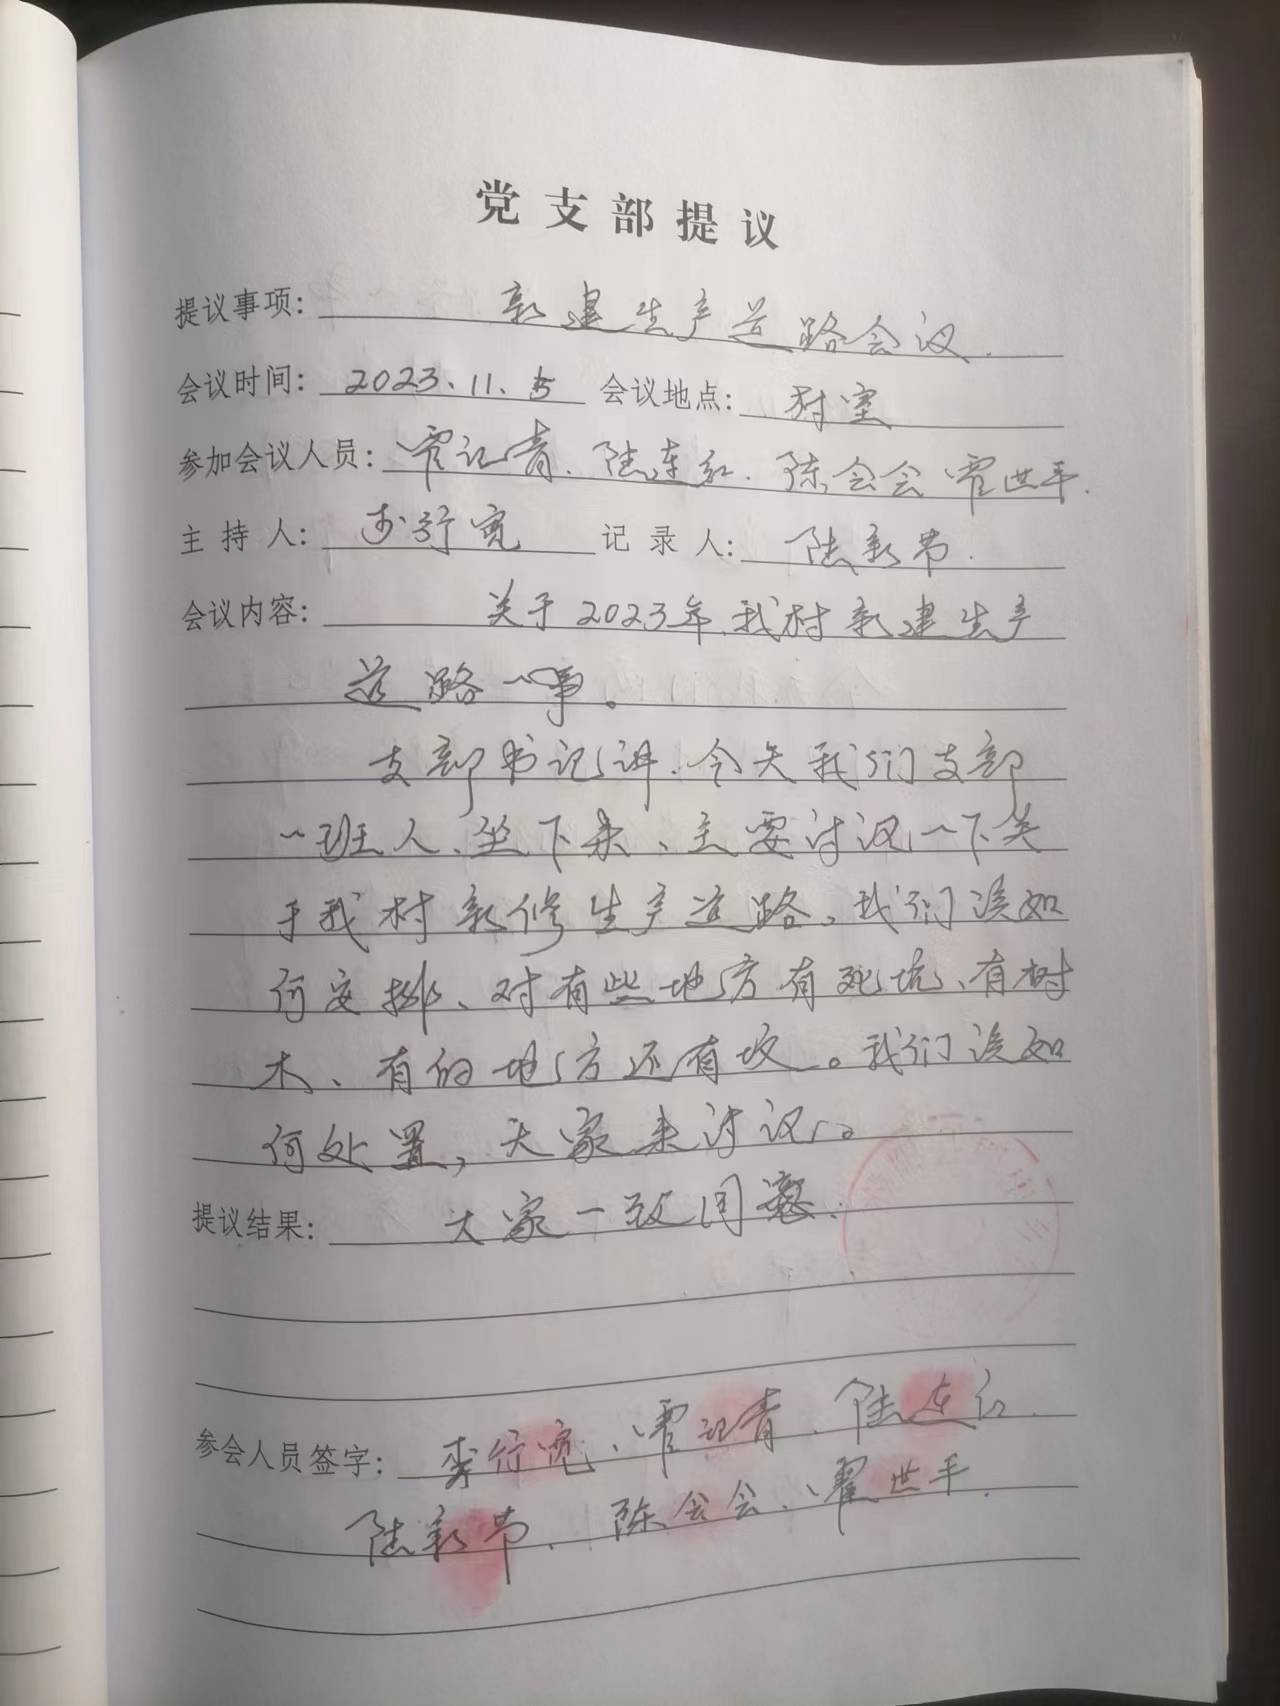 党支部提议
提议事项: 新建生产道路会议.
会议时间: 2023.11.5 会议地点: 村室
参加会议人员: 霍记青. 陆连红. 陈会会 霍世平.
主持人: 李行宽 记录人: 陆新节.
会议内容: 关于2023年我村新建生产
道路一事。
支部书记讲.今天我们支部
一班人、坐下来、主要讨议一下关
于我村新修生产道路。我们该如
何安排、对有些地方有死坑、有树
木、有的地方还有坟。我们该如
何处置,大家来讨议。
提议结果: 大家一致同意.
参会人员签字: 李行宽、霍记青. 陆连红.
陆新节. 陈会会、霍世平.